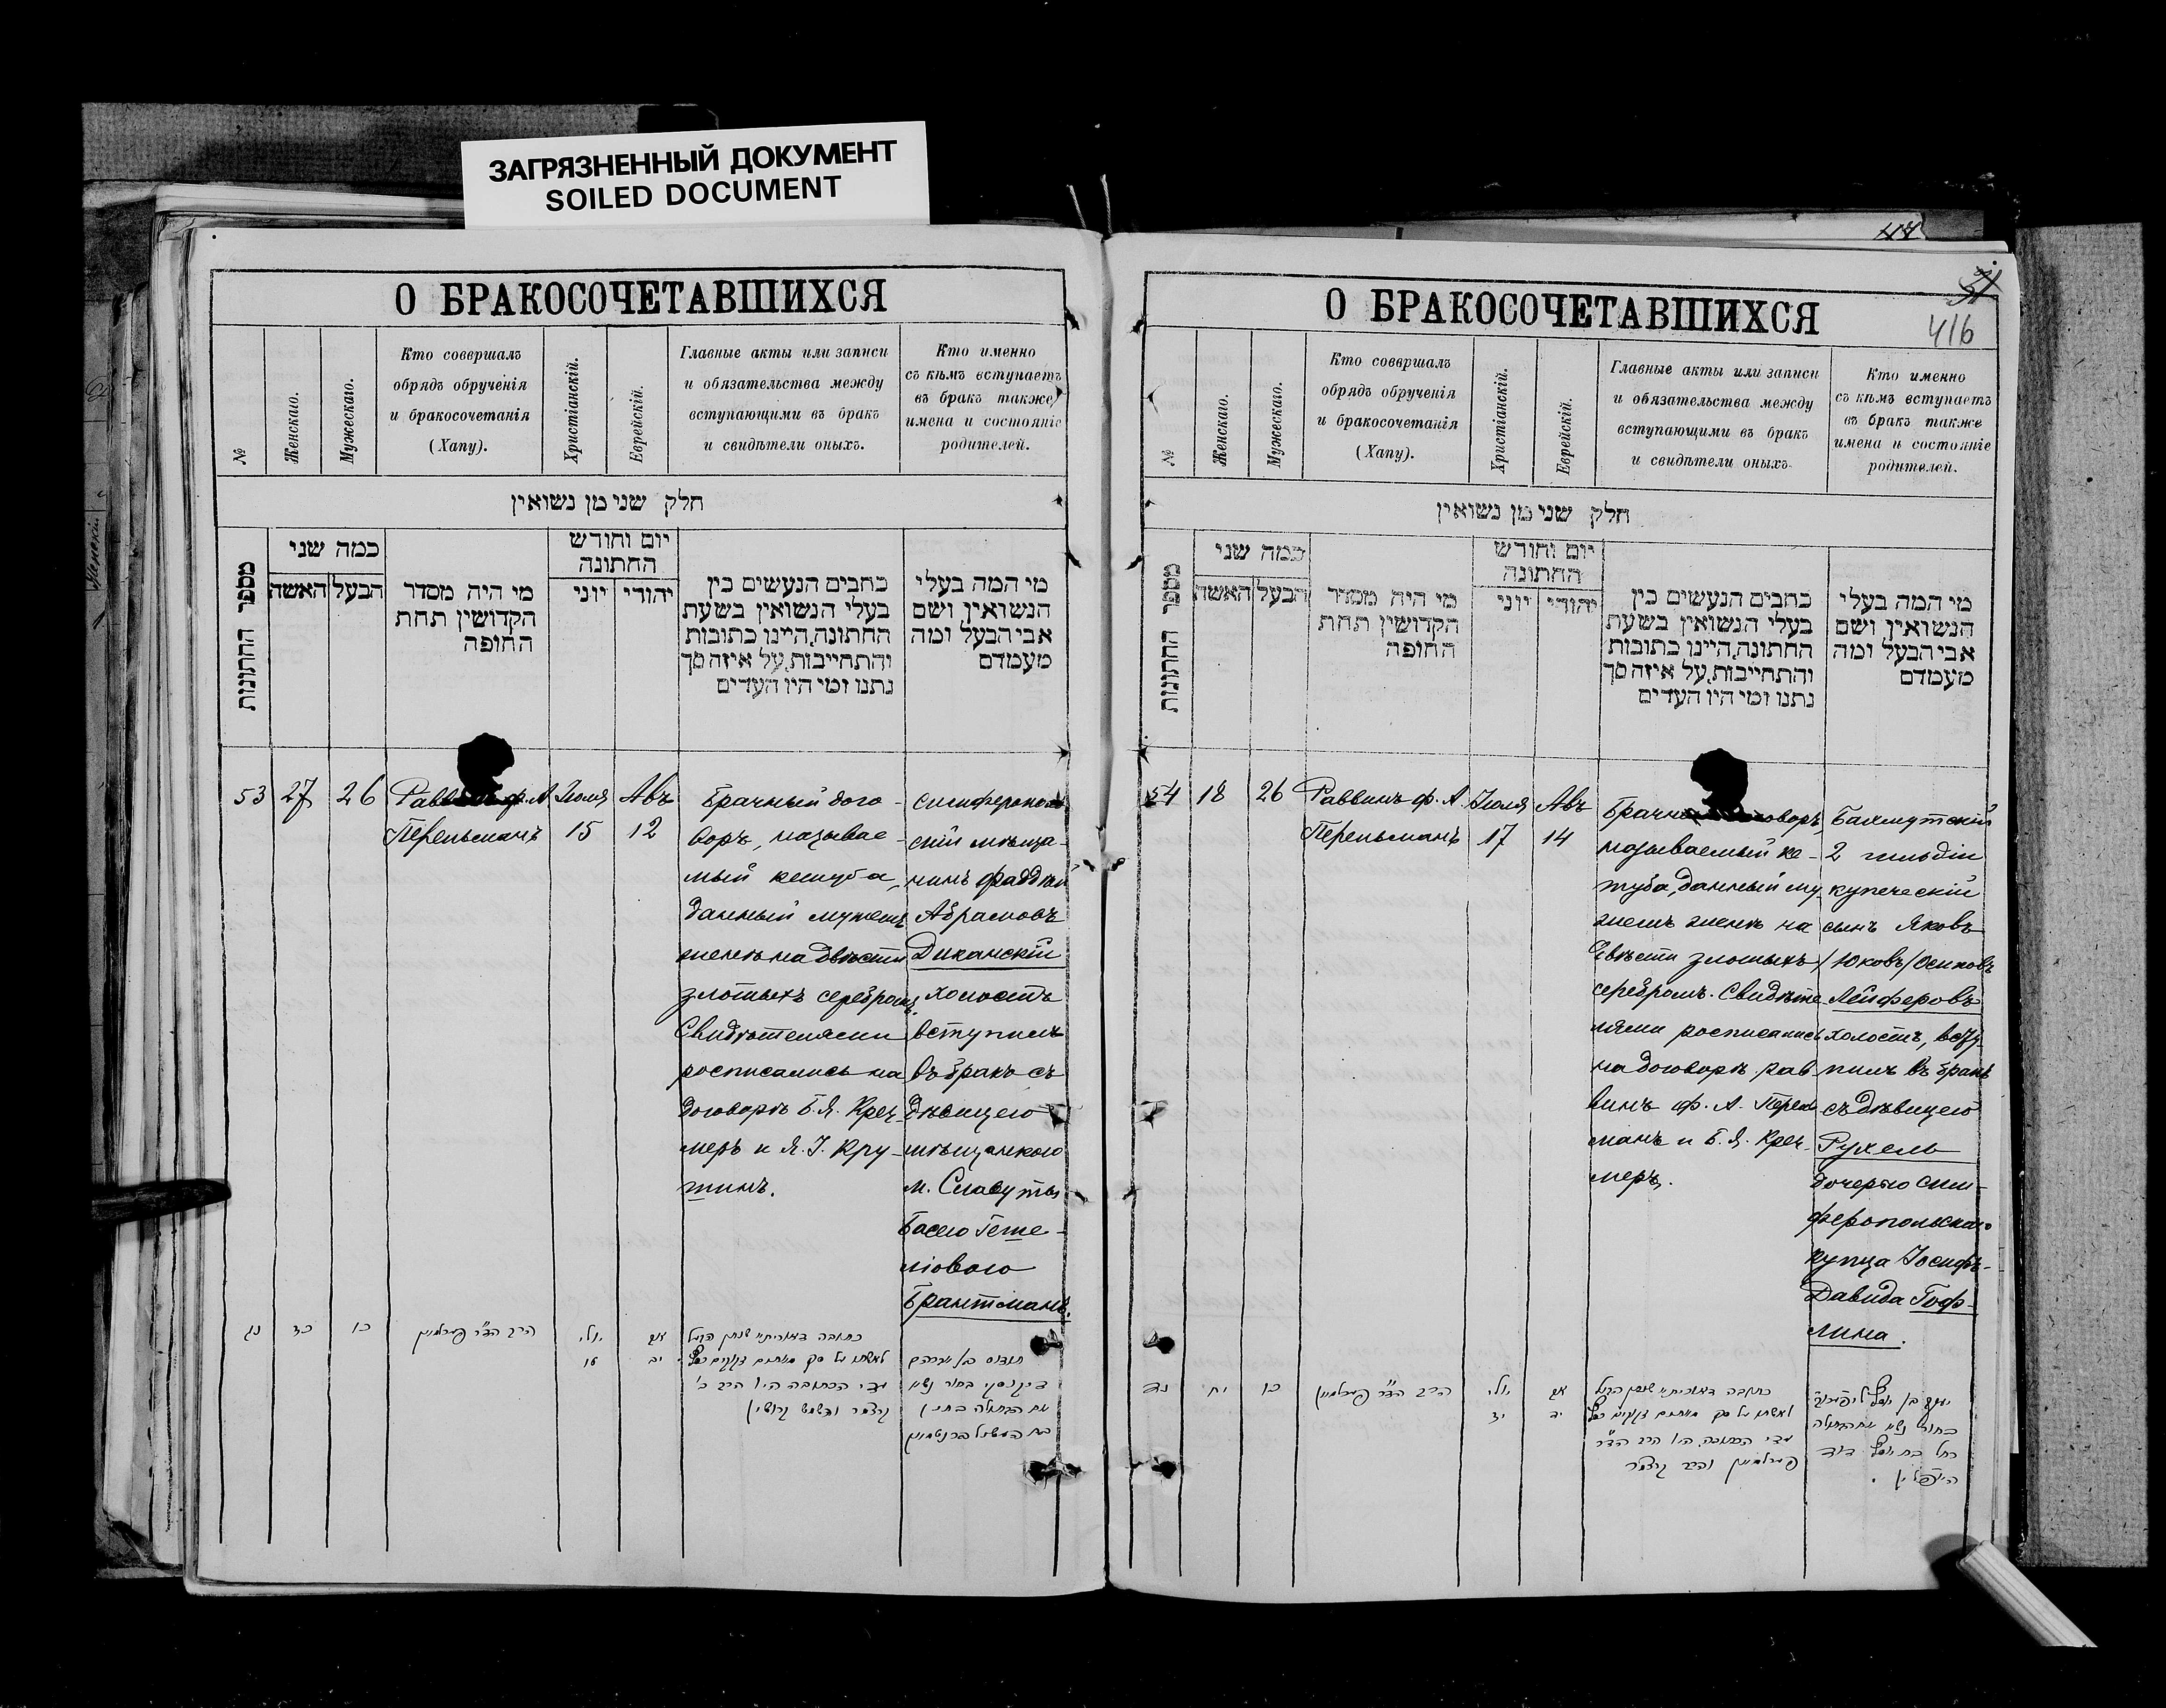 ЗАГРЯЗНЕННЫЙ ДОКУМЕНТ
SOILED DOCUMENT
О БРАКОСОЧЕТАВШИХСЯ
№
Женскаго.
Мужескаго.
Кто совершалъ
обрядъ обрученія
и бракосочетанія
(Хапу).
Христіанскій.
Еврейскій.
Главные акты или записи
и обязательства между
вступающими въ бракъ
и свидѣтели оныхъ.
Кто именно
съ кѣмъ вступаетъ
въ бракъ также
имена и состояніе
родителей.
חלק שני מן נשואין
מספר החתונות
כמה שני
האשה
הבעל
מי היה מסדר
הקדושין תחת
החופה
יום וחודש
החתונה
יוני
יהודי
כתבים הנעשים בין
בעלי הנשואין בשעת
החתונה, היינו כתובות
והתחייבות, על איזה סך
נתנו ומי היו העדים
מי המה בעלי
הנשואין ושם
אבי הבעל ומה
מעמדם
53
27
26
Перельманъ
Іюля
15
Авъ
12
Брачный дого-
воръ, называе-
мый кетуба,
данный мужемъ
женѣ на двѣсти
злотыхъ серебромъ.
Свидѣтелями
росписались на
договорѣ Б. Я. Крец-
меръ и Я. І. Кру-
тинъ.
симферополь
скій мѣща-
нинъ Фаддей
Абрамовъ
Диканскій
холостъ
вступилъ
въ бракъ съ
дѣвицею
мѣщанкою
м. Славуты
Басею Геше-
ліовою
Брантманъ.
נג
כז
כו
הרב הד"ר פערלמאן
יולי
טו
אב
יב
О БРАКОСОЧЕТАВШИХСЯ
416
№
Женскаго.
Мужескаго.
Кто совершалъ
обрядъ обрученія
и бракосочетанія
(Хапу).
Христіанскій.
Еврейскій.
Главные акты или записи
и обязательства между
вступающими въ бракъ
и свидѣтели оныхъ.
Кто именно
съ кѣмъ вступаетъ
въ бракъ также
имена и состояніе
родителей.
חלק שני מן נשואין
מספר החתונות
כמה שני
האשה
הבעל
מי היה מסדר
הקדושין תחת
החופה
יום וחודש
החתונה
יוני
יהודי
כתבים הנעשים בין
בעלי הנשואין בשעת
החתונה, היינו כתובות
והתחייבות, על איזה סך
נתנו ומי היו העדים
מי המה בעלי
הנשואין ושם
אבי הבעל ומה
מעמדם
54
18
26
Раввинъ Ф. А.
Перельманъ
Іюля
17
Авъ
14
называемый ке-
туба, данный му-
жемъ женѣ на
двѣсти злотыхъ
серебромъ. Свидѣте-
лями росписались
на договорѣ рав-
винъ Ф. А. Перель
манъ и Б. Я. Крец-
меръ.
Бахмутскій
2 гильдіи
купеческій
сынъ Яковъ
/Юковъ/ Осиповъ
Лейферовъ
холостъ, всту-
пилъ въ бракъ
съ дѣвицею
Рухель
дочерью сим-
феропольскаго
купца Іосифъ-
Давида Гоф-
лина.
נד
יח
כו
הרב הד"ר פערלמאן
יולי
יז
אב
יד